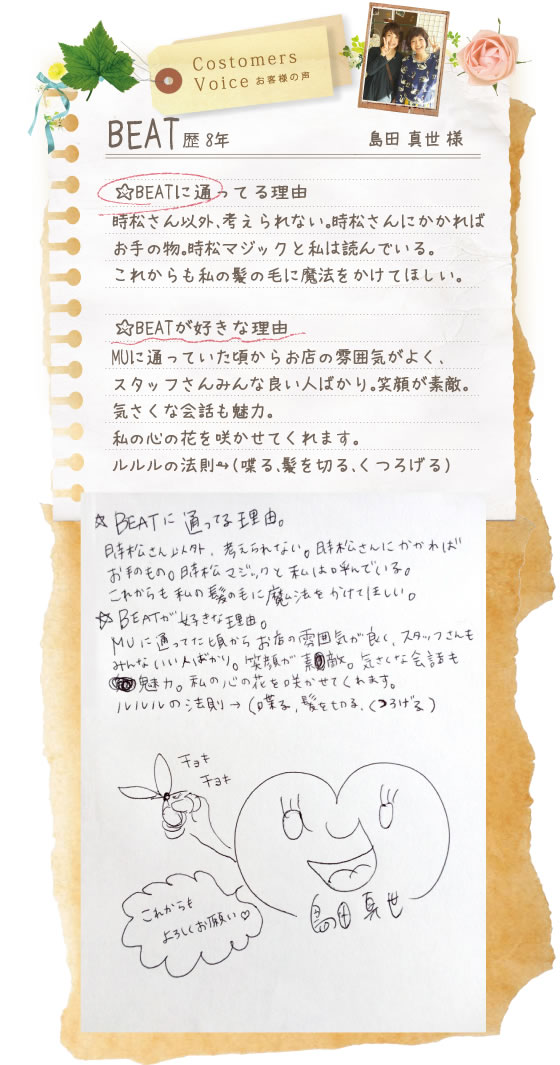 Costomers
Voice お客様の声
BEAT歴 8年 島田 真世 様
☆BEATに通ってる理由
時松さん以外、考えられない。時松さんにかかれば
お手の物。時松マジックと私は読んでいる。
これからも私の髪の毛に魔法をかけてほしい。
☆BEATが好きな理由
MUに通っていた頃からお店の雰囲気がよく、
スタッフさんみんな良い人ばかり。笑顔が素敵。
気さくな会話も魅力。
私の心の花を咲かせてくれます。
ルルルの法則→(喋る、髪を切る、くつろげる)
☆BEATに通ってる理由。
時松さん以外、考えられない。時松さんにかかれば
お手のもの。時松マジックと私は呼んでいる。
これからも私の髪の毛に魔法をかけてほしい。
☆BEATが好きな理由。
MUに通ってた頃からお店の雰囲気が良く、スタッフさんも
みんないい人ばかり。笑顔が素敵。気さくな会話も
魅力。私の心の花を咲かせてくれます。
ルルルの法則→(喋る,髪を切る、くつろげる)
チョキ
チョキ
これからも
よろしくお願い♡
島田真世